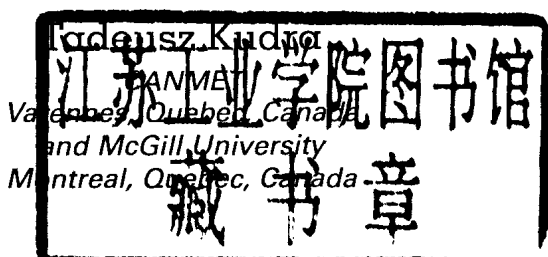 Tadeusz Kudra
CANMET
Varennes, Quebec, Canada
and McGill University
Montreal, Quebec, Canada
江苏工业学院图书馆
藏书章